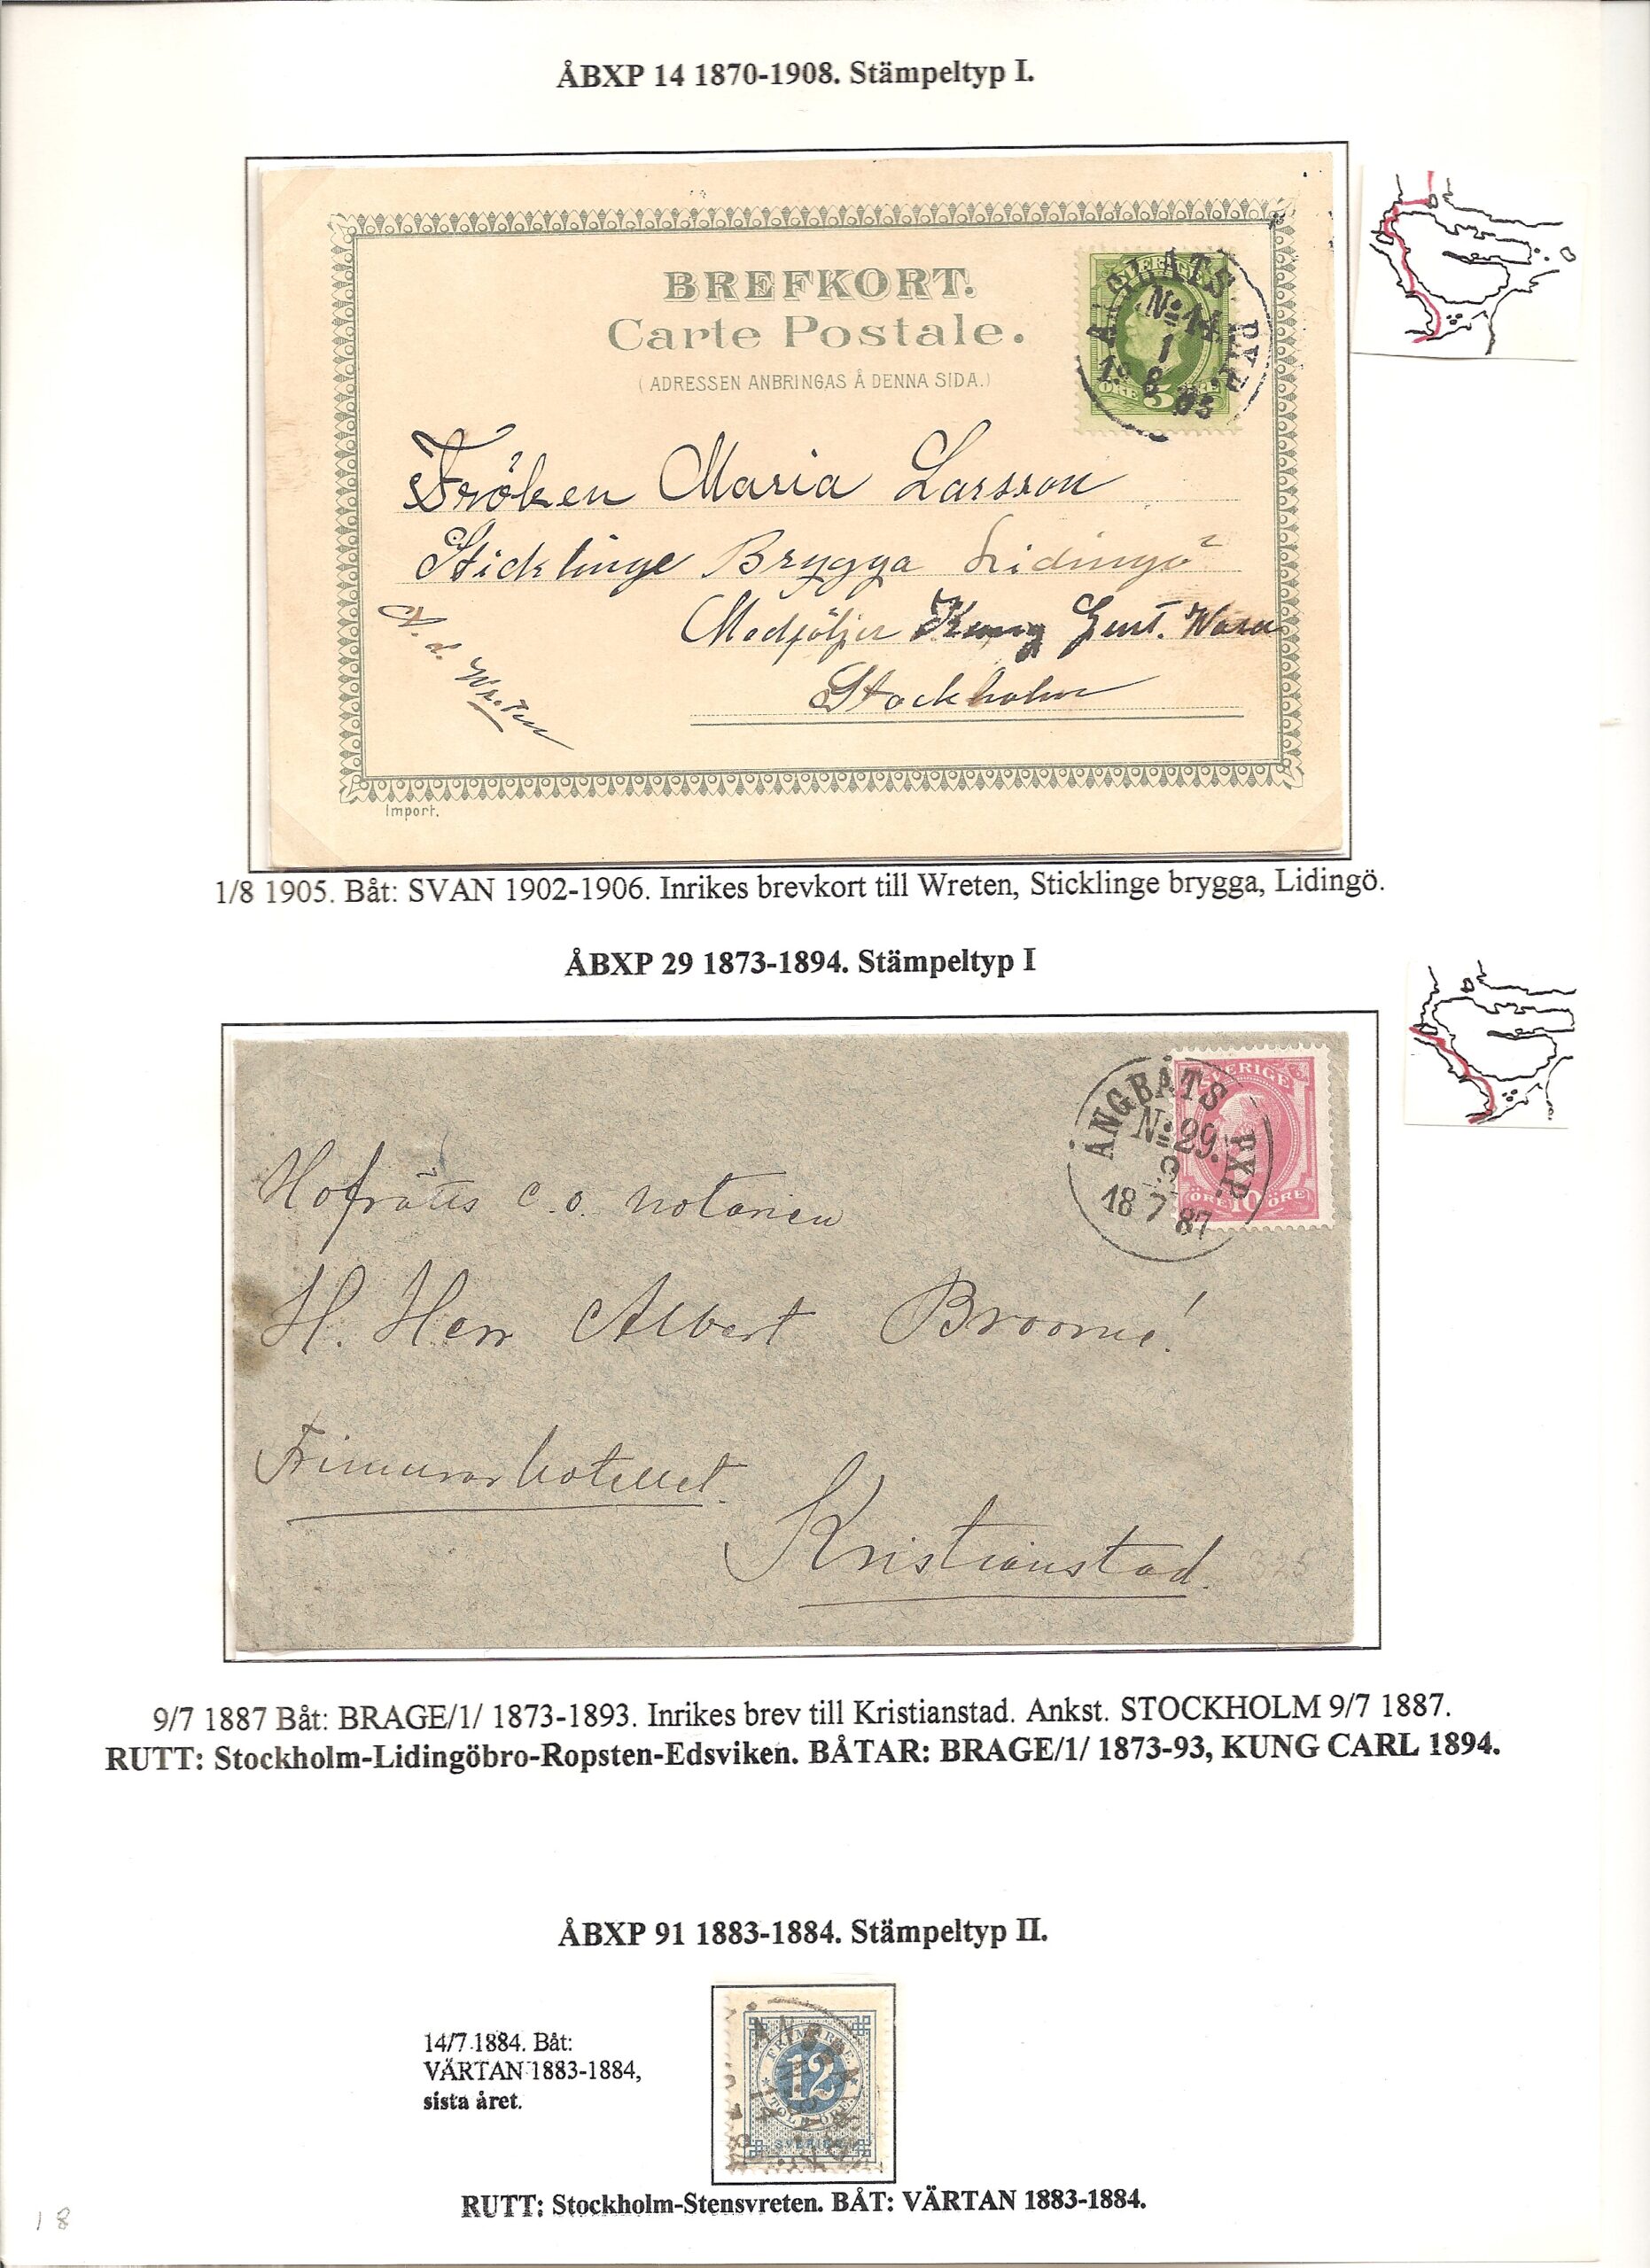 ÅBXP 14 1870-1908. Stämpeltyp I.
BREFKORT.
Carte Postale.
(ADRESSEN ANBRINGAS Å DENNA SIDA.)
SVERIGE
ÅNGBÅTS PXP
No 14
1
19 8 05
ÖRE 5 ÖRE
Fröken Maria Larsson
Sticklinge Brygga Lidingö
Medföljer Kung Gust. Wasa
Stockholm
Wreten
Import.
1/8 1905. Båt: SVAN 1902-1906. Inrikes brevkort till Wreten, Sticklinge brygga, Lidingö.
ÅBXP 29 1873-1894. Stämpeltyp I
SVERIGE
ÅNGBÅTS PXP.
No 29.
9
18 7 87
ÖRE 10 ÖRE
Hofrätts e.o. notarien
H. Herr Albert Broomé!
Frimurarhotellet.
Kristianstad.
325
9/7 1887 Båt: BRAGE/1/ 1873-1893. Inrikes brev till Kristianstad. Ankst. STOCKHOLM 9/7 1887.
RUTT: Stockholm-Lidingöbro-Ropsten-Edsviken. BÅTAR: BRAGE/1/ 1873-93, KUNG CARL 1894.
ÅBXP 91 1883-1884. Stämpeltyp II.
14/7 1884. Båt:
VÄRTAN 1883-1884,
sista året.
FRIMÄRKE
12
TOLF ÖRE
SVERIGE
RUTT: Stockholm-Stensvreten. BÅT: VÄRTAN 1883-1884.
18